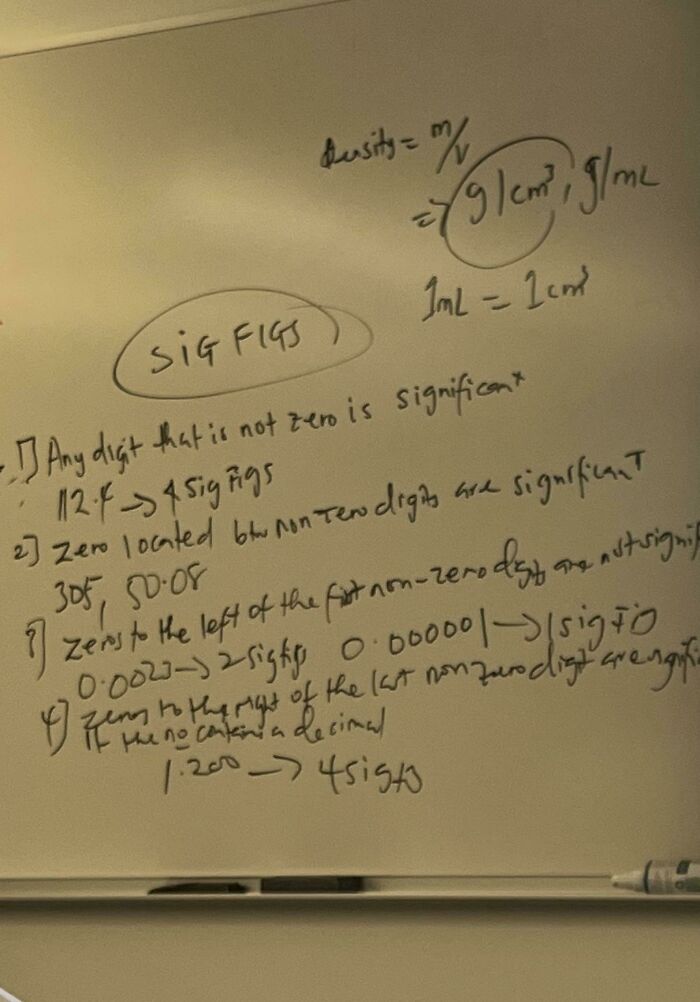 Density = m/v
=> g/cm³, g/mL
1mL = 1cm³
SIG FIGS
1] Any digit that is not zero is significant
112.4 → 4 sig figs
2] Zero located btw non zero digits are significant
305, 50.08
3] zeros to the left of the first non-zero digits are not signif
0.0023 → 2 sigfigs 0.000001 → 1 sig fig
4] zeros to the right of the last non zero digit are signifi
if the no contains a decimal
1.200 → 4 sigfigs